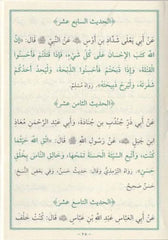 ﴿الحديث السابع عشر﴾
عَنْ أَبِي يَعْلَى شَدَّادِ بْنِ أَوْسٍ عَنِ النَّبِيِّ ﷺ قَالَ: «إِنَّ
اللهَ كَتَبَ الإِحْسَانَ عَلَى كُلِّ شَيْءٍ، فَإِذَا قَتَلْتُمْ فَأَحْسِنُوا
القِتْلَةَ، وَإِذَا ذَبَحْتُمْ فَأَحْسِنُوا الذِّبْحَةَ، وَلْيُحِدَّ أَحَدُكُمْ
شَفْرَتَهُ وَلْيُرِحْ ذَبِيحَتَهُ». رَوَاهُ مُسْلِمٌ.
﴿الحديث الثامن عشر﴾
عَنْ أَبِي ذَرٍّ جُنْدُبِ بْنِ جُنَادَةَ، وَأَبِي عَبْدِ الرَّحْمَنِ مُعَاذِ
ابْنِ جَبَلٍ عَنْ رَسُولِ اللهِ ﷺ قَالَ: «اتَّقِ اللهَ حَيْثُمَا
كُنْتَ، وَأَتْبِعِ السَّيِّئَةَ الحَسَنَةَ تَمْحُهَا، وَخَالِقِ النَّاسَ بِخُلُقٍ
حَسَنٍ». رَوَاهُ التِّرْمِذِيُّ وَقَالَ: حَدِيثٌ حَسَنٌ،
صَحِيحٌ.
﴿الحديث التاسع عشر﴾
عَنْ أَبِي العَبَّاسِ عَبْدِ اللهِ بْنِ عَبَّاسٍ قَالَ: كُنْتُ خَلْفَ